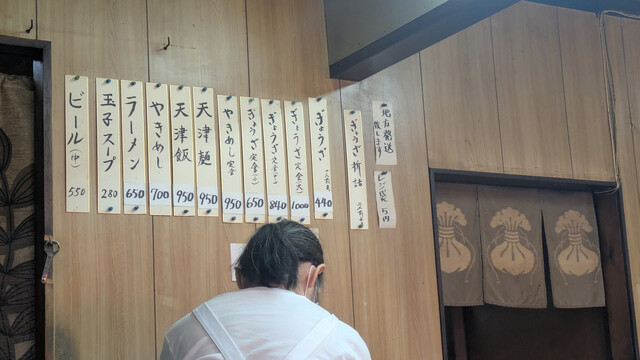 地方発送
致します
レジ袋 5円
ぎょうざ 折詰
ぎょうざ 440
ぎょうざ定食(大) 1000
ぎょうざ定食(中) 840
ぎょうざ定食(小) 650
やきめし定食 950
天津麺 950
天津飯 950
やきめし 700
ラーメン 650
玉子スープ 280
ビール(中) 550